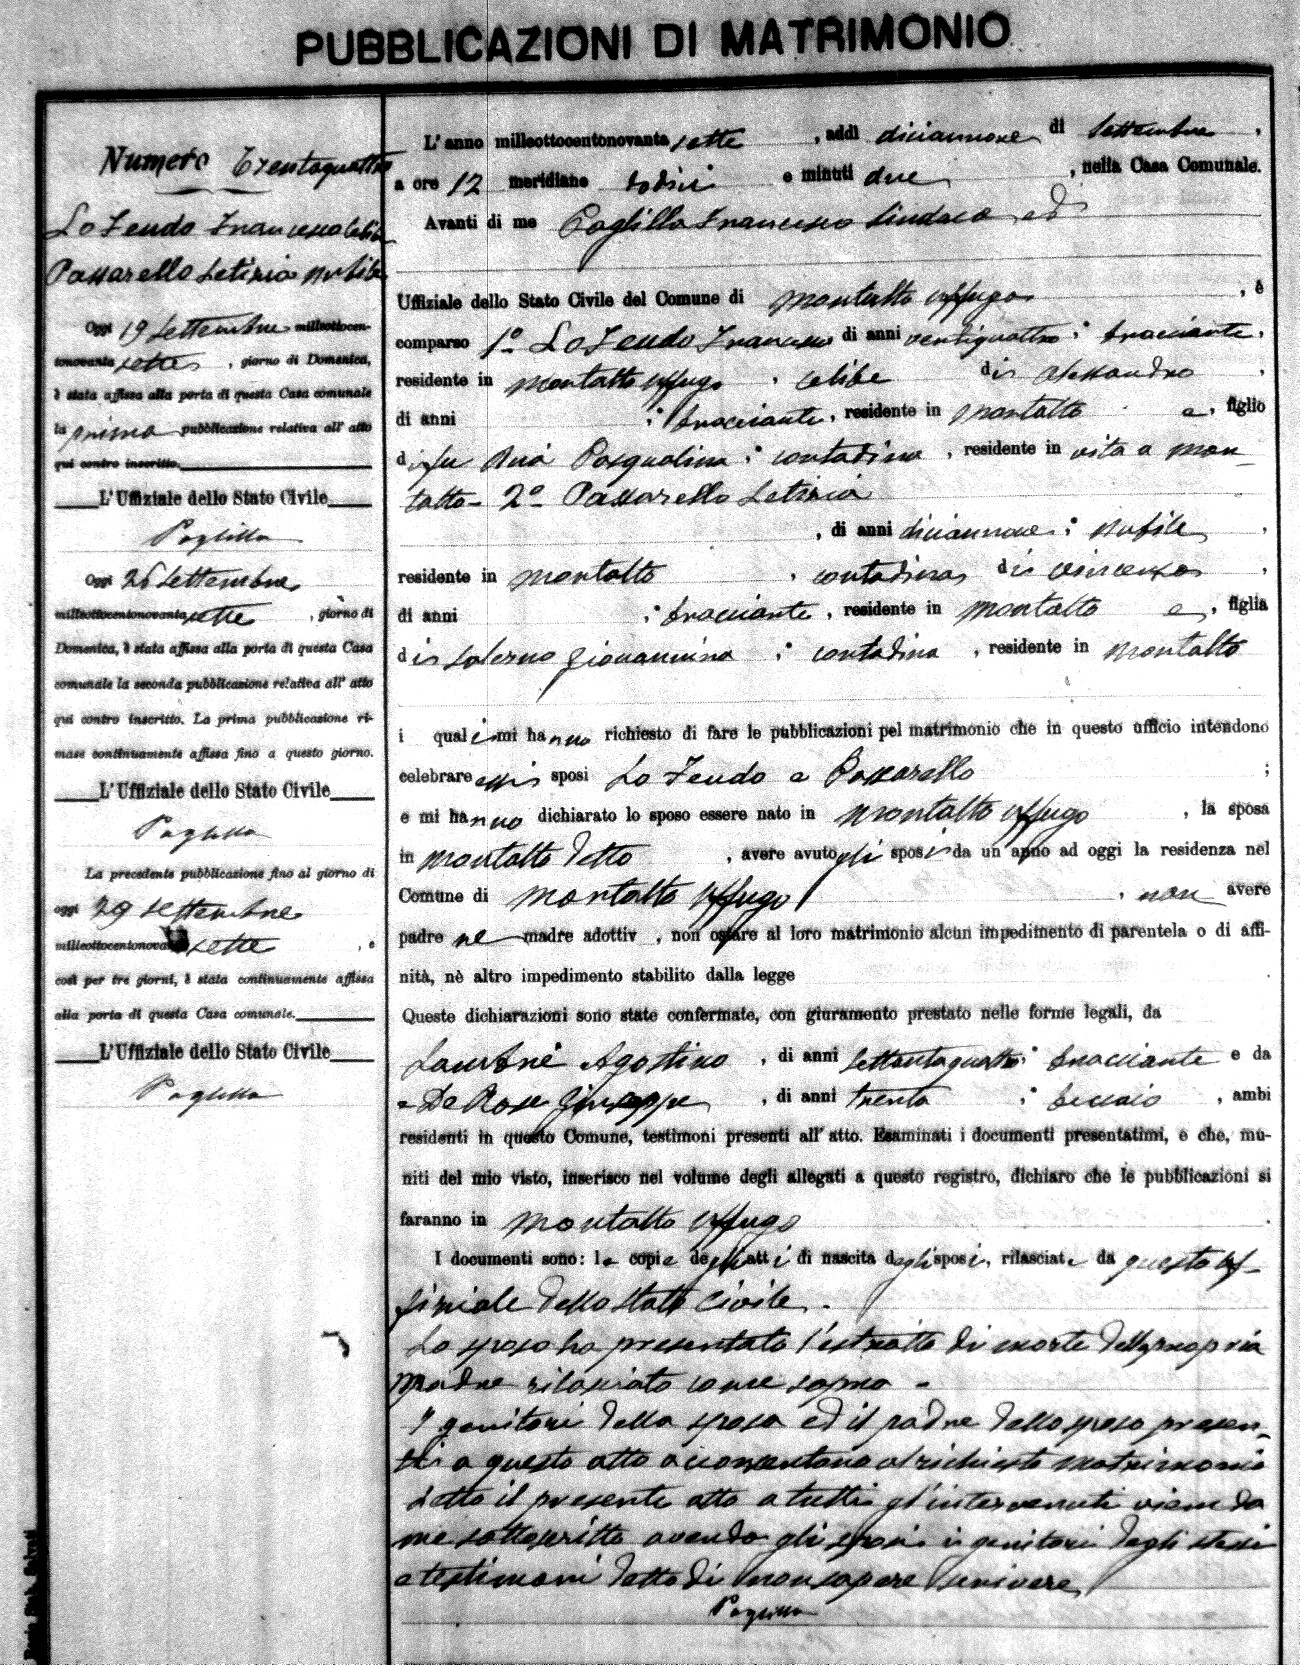 PUBBLICAZIONI DI MATRIMONIO
Numero Trentaquattro
Lo Feudo Francesco celibe
Passarello Letizia nubile
Oggi 19 Settembre milleottocen-
tonovanta sette, giorno di Domenica,
è stata affissa alla porta di questa Casa comunale
la prima pubblicazione relativa all' atto
qui contro inscritto.
L'Uffiziale dello Stato Civile
Oggi 26 Settembre
milleottocentonovanta sette, giorno di
Domenica, è stata affissa alla porta di questa Casa
comunale la seconda pubblicazione relativa all' atto
qui contro inscritto. La prima pubblicazione ri-
mase continuamente affissa fino a questo giorno.
L'Uffiziale dello Stato Civile
La precedente pubblicazione fino al giorno di
oggi 29 Settembre
milleottocentonova sette, e
così per tre giorni, è stata continuamente affissa
alla porta di questa Casa comunale.
L'Uffiziale dello Stato Civile
L' anno milleottocentonovanta sette, addì diciannove di Settembre,
a ore 12 meridiane dodici e minuti due, nella Casa Comunale.
Avanti di me Francesco Sindaco ed
Uffiziale dello Stato Civile del Comune di Montalto Uffugo, è
comparso 1º Lo Feudo Francesco di anni ventiquattro; bracciante,
residente in Montalto Uffugo, celibe di Alessandro,
di anni ; bracciante, residente in Montalto e, figlio
di fu Pasqualina; contadina, residente in vita a Mon-
talto - 2º Passarello Letizia
, di anni diciannove; nubile,
residente in Montalto, contadina, di Vincenzo,
di anni ; bracciante, residente in Montalto e, figlia
di Salerno Giovannina; contadina, residente in Montalto
i quali mi hanno richiesto di fare le pubblicazioni pel matrimonio che in questo ufficio intendono
celebrare essi sposi Lo Feudo e Passarello;
e mi hanno dichiarato lo sposo essere nato in Montalto Uffugo, la sposa
in Montalto detto, avere avuto gli sposi da un anno ad oggi la residenza nel
Comune di Montalto Uffugo, non avere
padre nè madre adottiv, non ostare al loro matrimonio alcun impedimento di parentela o di affi-
nità, nè altro impedimento stabilito dalla legge
Queste dichiarazioni sono state confermate, con giuramento prestato nelle forme legali, da
Agostino, di anni settantaquattro; bracciante e da
De Rose Giuseppe, di anni trenta; beccaio, ambi
residenti in questo Comune, testimoni presenti all' atto. Esaminati i documenti presentatimi, e che, mu-
niti del mio visto, inserisco nel volume degli allegati a questo registro, dichiaro che le pubblicazioni si
faranno in Montalto Uffugo
I documenti sono: le copie degli atti di nascita degli sposi, rilasciate da questo Uf-
fiziale dello Stato Civile.
Lo sposo ha presentato l'estratto di morte della propria
madre rilasciato come sopra -
I genitori della sposa ed il padre dello sposo presen-
ti a questo atto acconsentono al richiesto matrimonio
Letto il presente atto a tutti gl'intervenuti viene da
me sottoscritto avendo gli sposi i genitori degli stessi
e testimoni detto di non sapere scrivere